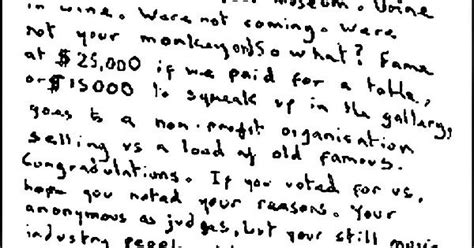 museum. Urine
in wine. Were not coming. Were
not your monkey and So what? Fame
at $25,000 if we paid for a table,
or $15000 to squeak up in the gallery,
goes to a non-profit organisation
selling us a load of old famous.
Congradulations. If you voted for us,
hope you noted your reasons. Your
anonymous as judges, but your still music
industry people